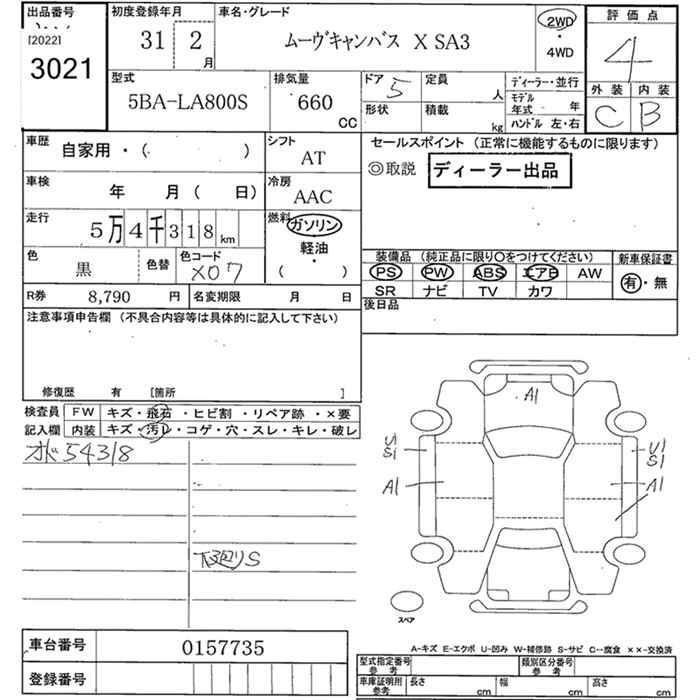 出品番号
[2022]
3021
初度登録年月
31 2
月
車名・グレード
ムーヴキャンバス X SA3
2WD
・
4WD
評価点
4
外装 内装
C B
型式
5BA-LA800S
排気量
660
CC
ドア 5
定員
人
形状
積載
kg
ディーラー・並行
モデル年式 年
ハンドル 左・右
車歴
自家用・( )
シフト
AT
車検
年 月 ( 日)
冷房
AAC
走行
5万4千318km
燃料
ガソリン
軽油
・
( )
色
黒
色替
色コード
X07
R券 8,790 円
名変期限 月 日
セールスポイント (正常に機能するものに限ります)
◎取説 ディーラー出品
装備品 (純正品に限り○をつけてください)
PS PW ABS エアB AW
SR ナビ TV カワ
新車保証書
有・無
後日品
注意事項申告欄 (不具合内容等は具体的に記入して下さい)
修復歴 有 [箇所 ]
検査員
記入欄
FW キズ・飛石・ヒビ割・リペア跡・×要
内装 キズ・汚レ・コゲ・穴・スレ・キレ・破レ
54318
下廻りS
A1
U1
S1
A1
U1
S1
A1
スペア
A-キズ E-エクボ U-凹み W-補修跡 S-サビ C-腐食 ××-交換済
車台番号 0157735
登録番号
型式指定番号
参考
類別区分番号
参考
車庫証明用
参考
長さ cm 幅 cm 高さ cm